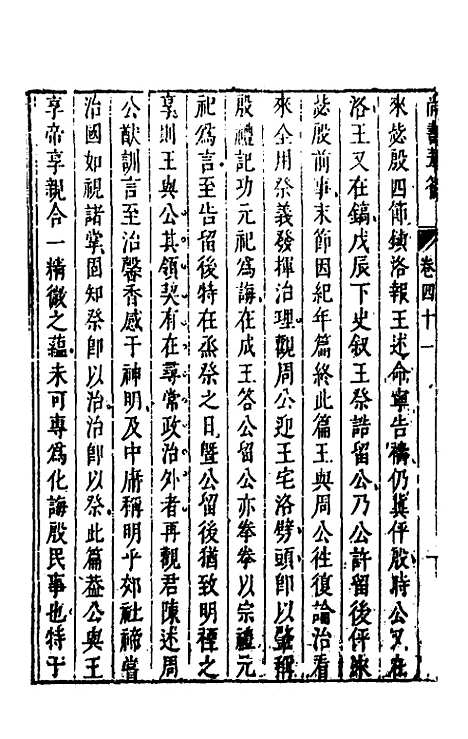 尚書卷四十一
來毖殷四節鎮洛報王述命寧告禱仍冀伻殷時公又在
洛王又在鎬戊辰下史叙王祭誥留公乃公許留後伻來
毖殷前事末節因紀年篇終此篇王與周公徃復論治看
來全用祭義發揮治理觀周公迎王宅洛劈頭卽以肇稱
殷禮記功元祀爲誨在成王答公留公亦拳拳以宗禮元
祀爲言至告留後特在烝祭之日曁公留後猶致明禋之
享則王與公其領契有在尋常政治外者再觀君陳述周
公猷訓言至治馨香感于神明及中庸稱明乎郊社禘嘗
治國如視諸掌固知祭卽以治治卽以祭此篇葢公與王
享帝享親合一精微之蘊未可專爲化誨殷民事也特于